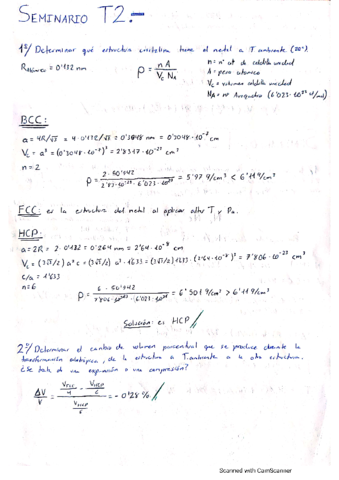 SEMINARIO T2.-
1º/ Determinar qué estructura cristalina tiene el metal a T ambiente (20º).
R_atómico = 0'132 nm
ρ = n A / V_c N_A
n = nº at de celdilla unidad
A = peso atómico
V_c = volumen celdilla unidad
N_A = nº Avogadro (6'023·10²³ at/mol)
BCC:
a = 4R/√3 = 4·0'132/√3 = 0'3048 nm = 0'3048·10⁻⁷ cm
V_c = a³ = (0'3048·10⁻⁷)³ = 2'8317·10⁻²³ cm³
n = 2
ρ = 2·50'942 / 2'83·10⁻²³·6'023·10²³ = 5'97 g/cm³ < 6'11 g/cm³
FCC: es la estructura del metal al aplicar altas T y P.
HCP:
a = 2R = 2·0'132 = 0'264 nm = 2'64·10⁻⁸ cm
V_c = (3√3/2) a² c = (3√3/2) a³·1'633 = (3√3/2)·1'633·(2'64·10⁻⁸)³ = 7'806·10⁻²³ cm³
c/a = 1'633
n = 6
ρ = 6·50'942 / 7'806·10⁻²³·6'023·10²³ = 6'501 g/cm³ > 6'11 g/cm³
Solución: es HCP
2º/ Determinar el cambio de volumen porcentual que se produce durante la
transformación alotrópica, de la estructura a T ambiente a la otra estructura.
¿Se trata de una expansión o una compresión?
ΔV/V = (V_FCC/4 - V_HCP/6) / (V_HCP/6) = -0'28 %
Scanned with CamScanner